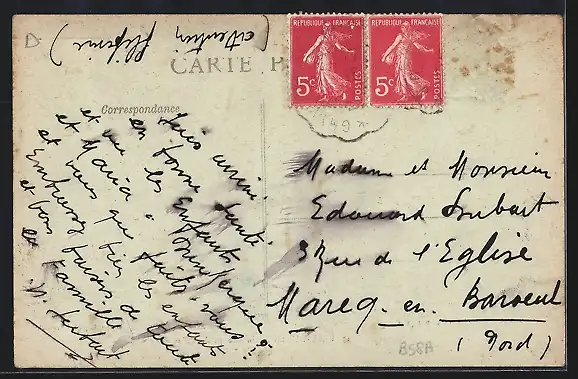 (attention
CARTE P
REPUBLIQUE FRANÇAISE
5c
POSTES
REPUBLIQUE FRANÇAISE
5c
POSTES
Correspondance
Suis arrivé
en bonne santé
et vu les Enfants
et Maria à
et vous que faites-vous?
Embrassez bien les enfants
et bons baisers de toute
la Famille
Madame et Monsieur
Edouard
3 Rue de l'Eglise
Marcq-en-Baroeul
(Nord)
B58A